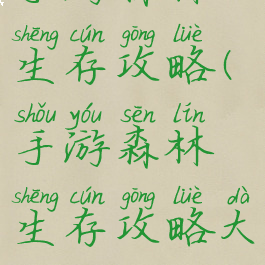 shēng cún gōng lüè
生存攻略(
shǒu yóu sēn lín
手游森林
shēng cún gōng lüè dà
生存攻略大